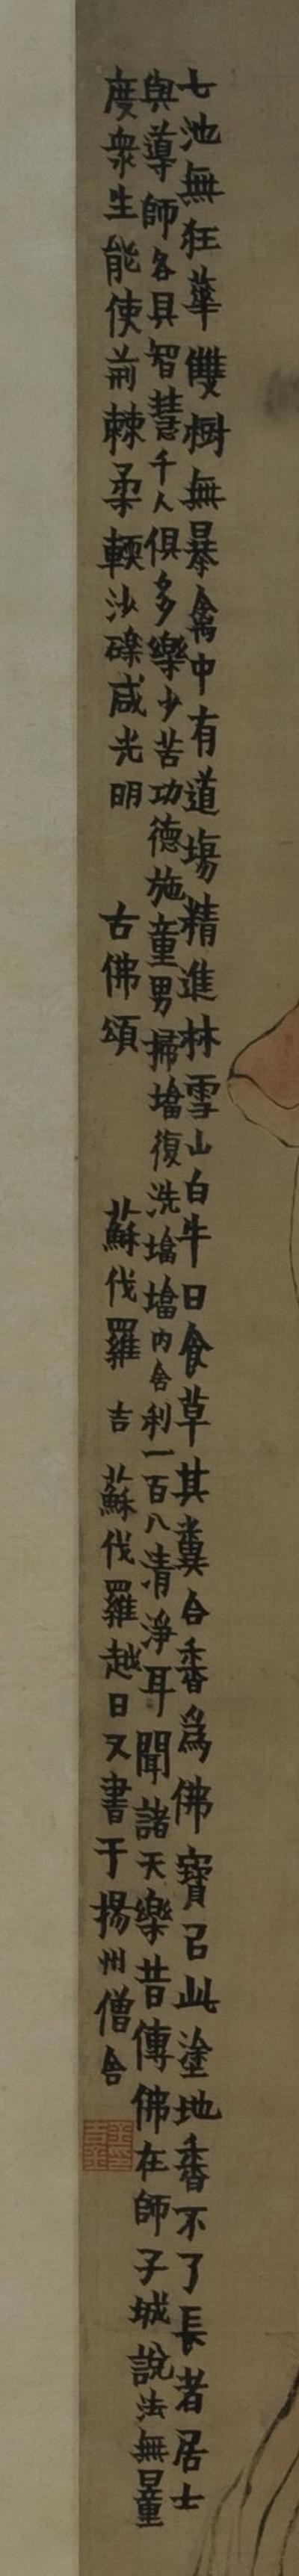 七池無狂華雙樹無暴禽中有道場精進林雪山白牛日食草其糞合香為佛寶㠯此塗地香不了長者居士
與導師各具智慧千人俱多樂少苦功德施童男掃塔復洗塔塔內舍利一百八清淨耳聞諸天樂昔傳佛在師子城說法無量
度眾生能使荊棘柔輭沙磔咸光明 古佛頌 蘇伐羅吉蘇伐羅越日又書于揚州僧舍